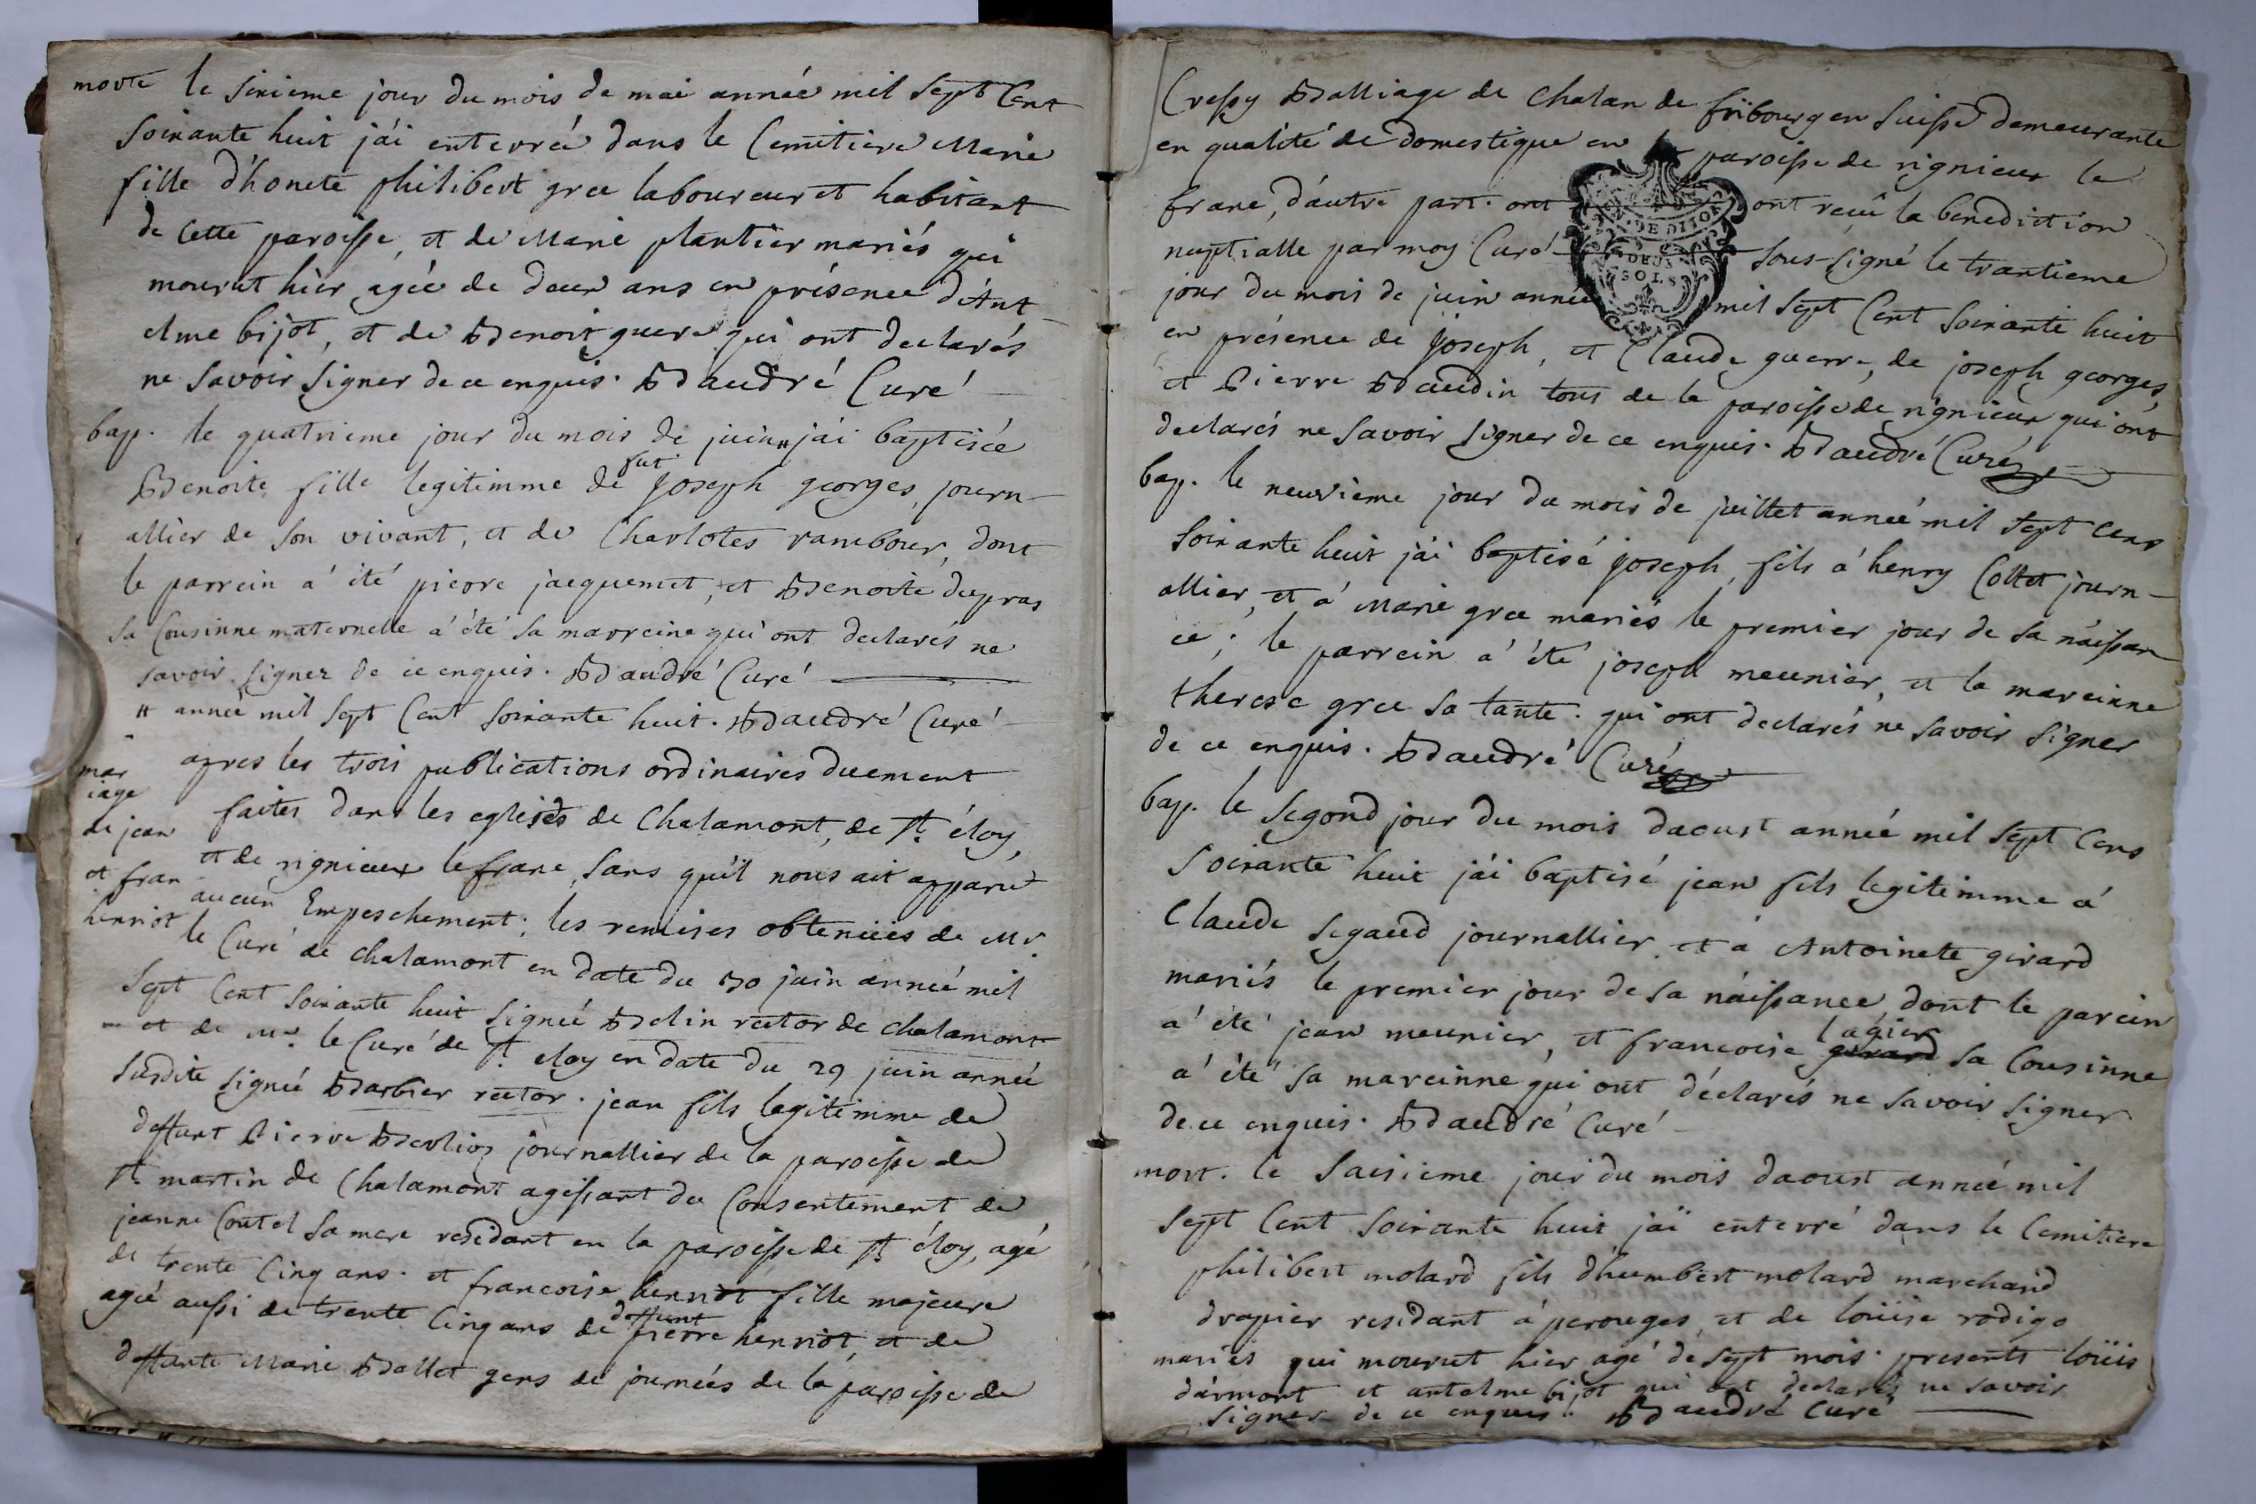 morte le sixieme jour du mois de mai année mil sept Cent
soixante huit j'ái enterrée dans le Cemitiere Marie
fille d'honete philibert gree laboureur et habitant
de cette paroisse, et de Marie plantier mariés qui
mourut hièr agée de deux ans en présence d'Ant
elme bijot, et de Benoit guere qui ont declarés
ne savoir signer de ce enquis. Baudré Curé
bap. le quatrieme jour du mois de juin # j'ái baptisée
fut
Benoite fille legitimme de joseph georges, journ-
allier de son vivant, et de Charlotes rambour, dont
le parrein á été pierre jacquemet, et Benoite dupras
sa Cousinne maternelle á été sa marreine qui ont declarés ne
savoir signer de ce enquis. Baudré Curé
# année mil sept Cent soixante huit. Baudré Curé
mar
iage
de jean
et fran
henriot
apres les trois publications ordinaires duement
faites dans les eglises de Chalamont, de St. éloy,
et de rignieux lefranc, sans qu'il nous ait apparut
aucun Empeschement; les remises obtenuës de Mr.
le Curé de chalamont en date du 30 juin année mil
sept Cent soixante huit signée Belin rector de chalamont
et de Mr. le Curé de St. eloy en date du 29 juin année
susdite signée Barbier rector. jean fils legitimme de
deffunt Pierre journallier de la paroisse de
St. martin de Chalamont agissant du Consentement de
jeanne Coutel sa mere residant en la paroisse de St. éloy, agé
de trente Cinq ans. et francoise henriot fille majeure
deffunt
agée aussi de trente Cinq ans de pierre henriot, et de
deffunte Marie Ballet gens de journées de la paroisse de
Cressy Balliage de Chalan de fribourg en suisse demeurante
en qualité de domestique en paroisse de rignieux le
franc, d'áutre part. ont ont reçu la benediction
nuptialle par moy Curé sous-signé le trantieme
jour du mois de juin année mil sept Cent soixante huit
GEN. DE DIJON
DEUX
SOLS
en présence de joseph, et Claude guerre, de joseph georges,
et Pierre Baudin tous de la paroisse de rignieux qui ónt
declarés ne savoir signer de ce enquis. Baudré Curé
bap. le neuvieme jour du mois de juillet année mil sept Cens
soixante huit j'ái baptisé joseph, fils á henry Collet journ-
allier, et á Marie gree mariés le premier jour de sa náissan
ce; le parrein á été joseph meunier, et la mareinne
therese gree sa tante. qui ont declarés ne savoir signer
de ce enquis. Baudré Curé
bap. le segond jour du mois daoust année mil sept Cens
soixante huit j'ái baptisé jean fils legitimme á
Claude segaud journallier et á Antoinete girard
mariés le premier jour de sa náissance dont le parein
lagier
á été jean meunier, et francoise girard sa Cousinne
á été sa mareinne qui ont déclarés ne savoir signer
de ce enquis. Baudré Curé
mort. le saisieme jour du mois daoust année mil
sept Cent soixante huit j'ái enterré dans le Cemitiere
philibert molard fils d'humbert molard marchand
drapier residant á perouges, et de loüise rodigo
mariés qui mourut hier agé de sept mois. presents loüis
dármont et antelme bijot qui ont declarés ne savoir
signer de ce enquis. Baudré Curé